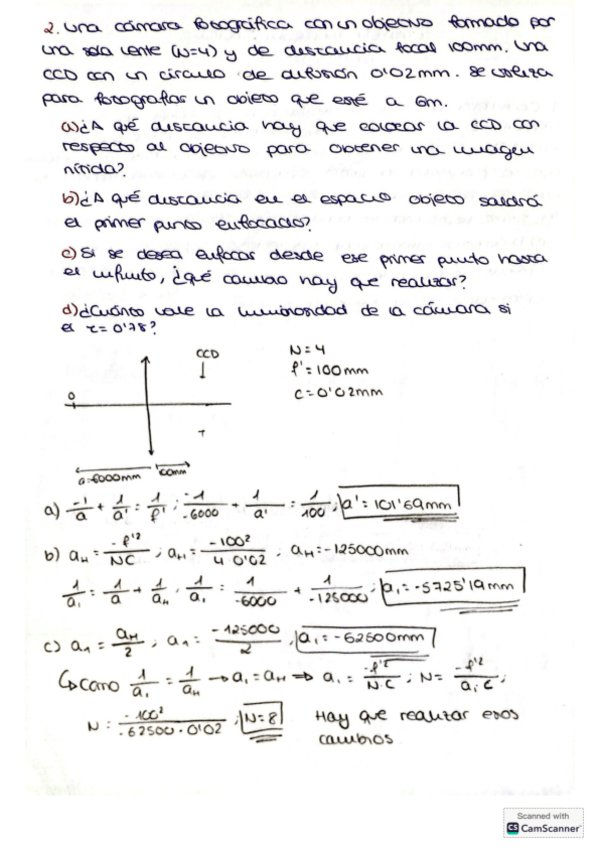 2. Una cámara fotográfica con un objetivo formado por
una sola lente (N=4) y de distancia focal 100mm. Una
CCD con un círculo de difusión 0'02mm. Se utiliza
para fotografiar un objeto que esté a 6m.
a) ¿A qué distancia hay que colocar la CCD con
respecto al objetivo para obtener una imagen
nítida?
b) ¿A qué distancia en el espacio objeto saldrá
el primer punto enfocado?
c) Si se desea enfocar desde ese primer punto hasta
el infinito, ¿qué cambio hay que realizar?
d) ¿Cuánto vale la luminosidad de la cámara si
el τ=0'78?
CCD
N=4
f'=100mm
c=0'02mm
O
a=6000mm
100mm
a) -1/a + 1/a' = 1/f' ; -1/-6000 + 1/a' = 1/100 ; a'=101'69mm
b) aH = -f'²/NC ; aH = -100²/4·0'02 ; aH=-125000mm
1/a₁ = 1/a + 1/aH · 1/a₁ = 1/-6000 + 1/-125000 ; a₁=-5725'19mm
c) a₁ = aH/2 ; a₁ = -125000/2 ; a₁=-62500mm
↳ Como 1/a₁ = 1/aH → a₁=aH ⇒ a₁ = -f'²/N·C ; N = -f'²/a₁·C ;
N = -100²/-62500·0'02 ; N=8 Hay que realizar esos
cambios
Scanned with
CS CamScanner